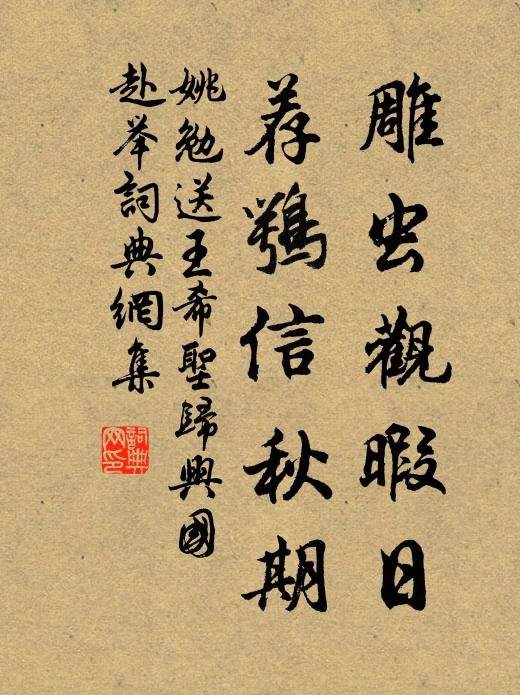 雕虫觀暇日
荐鶚信秋期
姚勉送王希聖歸興國
赴举詞典網集
詞典網印